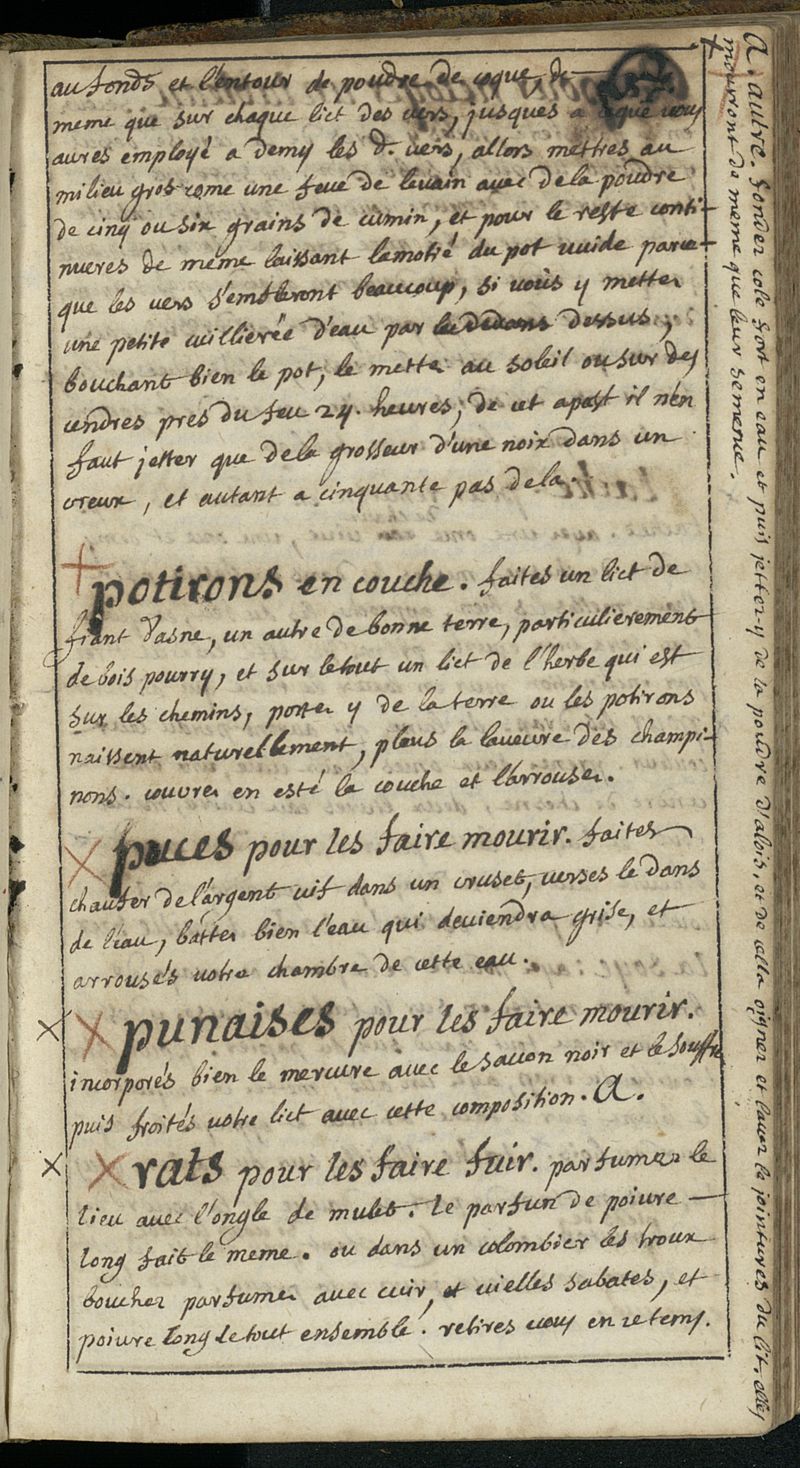 au fonds et l'entour de poudre de coque de
meme que sur chaque lict des vers, jusques a ceque vous
aures employé a demy les d. vers, allors mettres au
milieu gros come une feve de levain avec dela poudre
de cinq ou six grains de cumin, et pour le reste conti-
nueres de meme laissant lamotié du pot vuide parce-
que les vers s'enfleront beaucoup, si vous y mettez
une petite cuillierée d'eau par dessus,
bouchant bien le pot, le mettez au soleil ou sur des
cendres pres du feu 24. heures, de cet apast il n'en
faut jetter que dela grosseur d'une noix dans un
creux, et autant a cinquante pas dela.
potirons en couche. faites un lict de
fiant d'asne, un autre de bonne terre, particulierement
de bois pourry, et sur letout un lict de l'herbe qui est
sur les chemins, portez y de la terre ou les potirons
naissent naturellement, plus la laveure des champi-
nons. couvrez en esté la couche et l'arrousez.
puces pour les faire mourir. faites
chaufer de l'argent vif dans un cruset, verses le dans
de l'eau, battez bien l'eau qui deviendra grise, et
arrousés votre chambre de cette eau.
punaises pour les faire mourir.
incorporés bien le mercure avec le savon noir et le souffre
puis froités votre lict avec cette composition. a.
rats pour les faire fuir. parfumez le
lieu avec l'ongle de mulet. le parfun de poivre
long fait le meme. ou dans un colombier les troux
bouchez parfumez avec cuir, et vielles sabates, et
poivre long letout ensemblé. retires vous en ce temps.
a. autre. fondez cole fort en eau et puis jettez-y de la poudre d'alois, et de cella oignez et lavez le jointures du lit. elles
mourront de meme que leur semence.